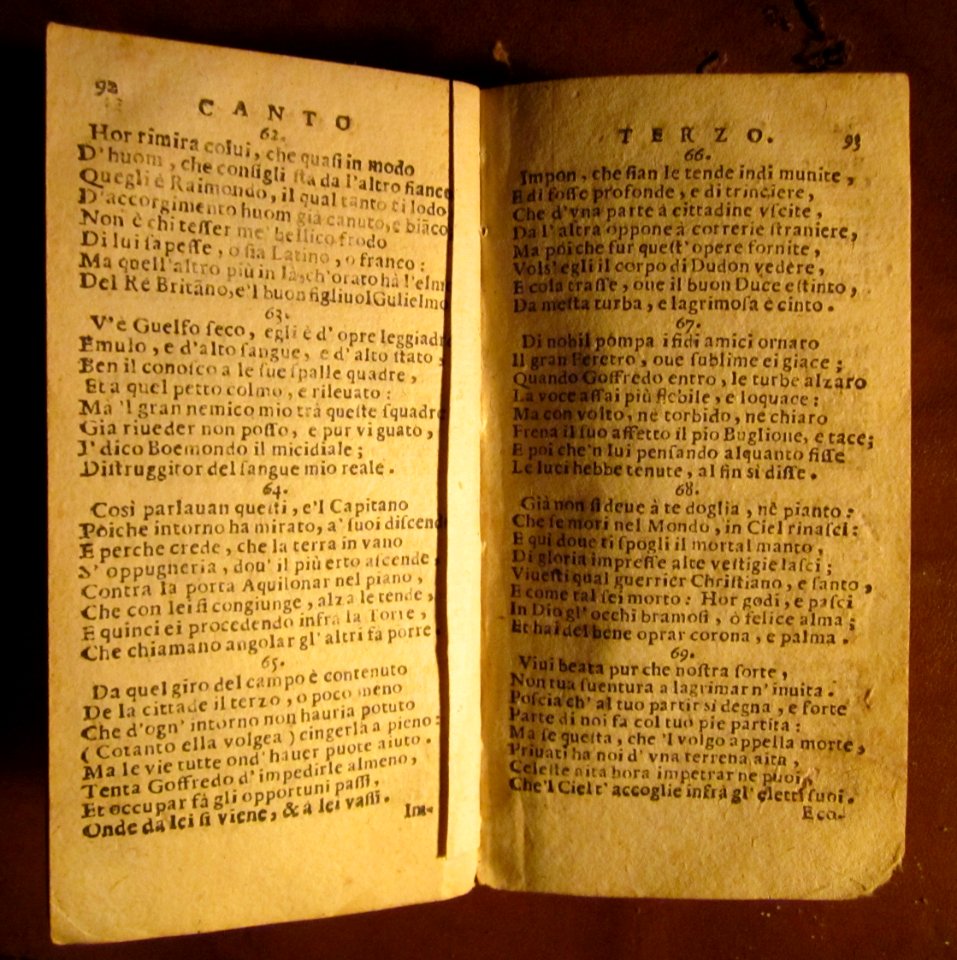 92
CANTO
62.
Hor rimira colui, che quaſi in modo
D'huom, che conſigli ſta da l'altro fianco
Quegli è Raimondo, il qual tanto ti lodo
D'accorgimento huom gia canuto, e biāco
Non è chi teſſer me' bellico frodo
Di lui ſapeſſe, o ſia Latino, o franco:
Ma quell'altro più in là, ch'orato hà l'elm
Del Rè Britāno, e'l buon figliuol Gulielmo
63.
V'è Guelfo ſeco, egli è d' opre leggiadr
Emulo, e d'alto ſangue, e d'alto ſtato,
Ben il conoſco a le ſue ſpalle quadre,
Et a quel petto colmo, e rileuato:
Ma 'l gran nemico mio trà queſte ſquadre
Gia riueder non poſſo, e pur vi guato,
I' dico Boemondo il micidiale;
Diſtruggitor del ſangue mio reale.
64.
Così parlauan queſti, e'l Capitano
Poiche intorno ha mirato, a' ſuoi diſcend
E perche crede, che la terra in vano
S' oppugneria, dou' il più erto aſcende,
Contra la porta Aquilonar nel piano,
Che con lei ſi congiunge, alza le tende,
E quinci ei procedendo infra la Torre,
Che chiamano angolar gl' altri fà porre.
65.
Da quel giro del campo è contenuto
De la cittade il terzo, o poco meno
Che d'ogn' intorno non hauria potuto
(Cotanto ella volgea) cingerla a pieno:
Ma le vie tutte ond' hauer puote aiuto.
Tenta Goffredo d' impedirle almeno,
Et occupar fà gli opportuni paſſi,
Onde da lei ſi viene, & à lei vaſſi.
Im-
TERZO.
93
66.
Impon, che ſian le tende indi munite,
E di foſſe profonde, e di trinciere,
Che d'vna parte à cittadine vſcite,
Da l'altra oppone à correrie ſtraniere,
Ma poi che fur queſt' opere fornite,
Vols' egli il corpo di Dudon vedere,
E colà traſſe, oue il buon Duce eſtinto,
Da meſta turba, e lagrimoſa è cinto.
67.
Di nobil pompa i fidi amici ornaro
Il gran Feretro, oue ſublime ei giace;
Quando Goffredo entro, le turbe alzaro
La voce aſſai più flebile, e loquace:
Ma con volto, nè torbido, nè chiaro
Frena il ſuo affetto il pio Buglione, e tace;
E poi che'n lui penſando alquanto fiſſe
Le luci hebbe tenute, al fin ſi diſſe.
68.
Già non ſi deue à te doglia, nè pianto:
Che ſe mori nel Mondo, in Ciel rinaſci:
E qui doue ti ſpogli il mortal manto,
Di gloria impreſſe alte veſtigie laſci;
Viueſti qual guerrier Chriſtiano, e ſanto,
E come tal ſei morto: Hor godi, e paſci
In Dio gl' occhi bramoſi, ò felice alma;
Et hai del bene oprar corona, e palma.
69.
Viui beata pur che noſtra ſorte,
Non tua ſuentura a lagrimar n' inuita.
Poſcia ch' al tuo partir si degna, e forte
Parte di noi fa col tuo piè partita:
Ma ſe queſta, che 'l volgo appella morte,
Priuati ha noi d' vna terrena aita,
Celeſte aita hora impetrar ne puoi,
Che'l Ciel t' accoglie infrà gl' eletti ſuoi.
Eco-